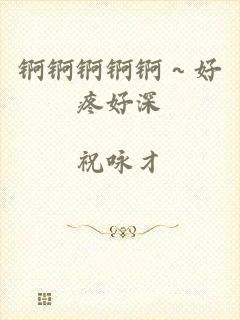 锕锕锕锕锕～好
疼好深
祝咏才